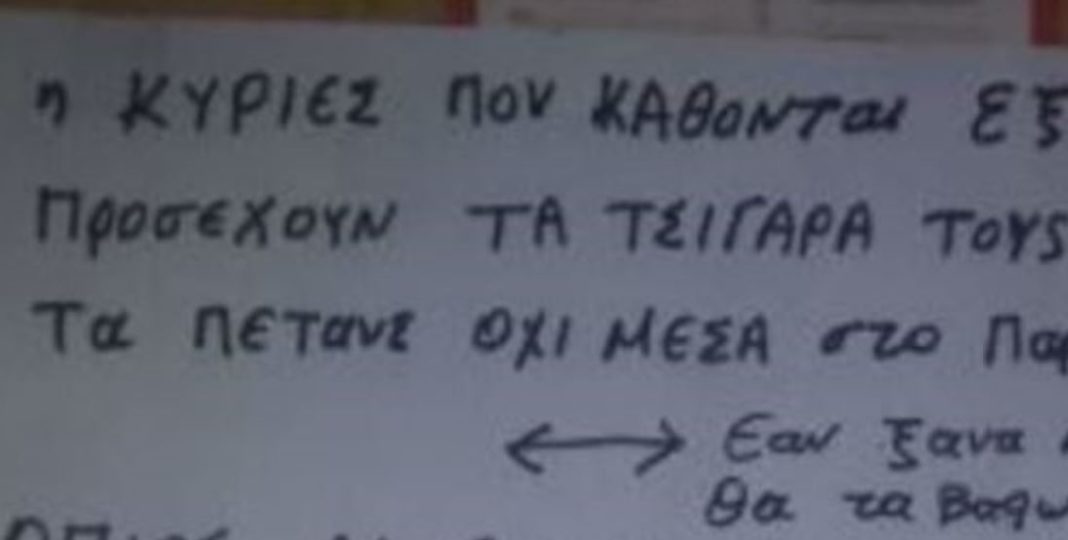 η ΚΥΡΙΕΣ ΠΟΥ ΚΑΘΟΝΤΑΙ
ΠροσεχουΝ ΤΑ ΤΣΙΓΑΡΑ ΤΟΥΣ
Τα ΠΕΤανε ΟΧΙ ΜΕΣΑ στο
Εαν ξανα
Θα τα